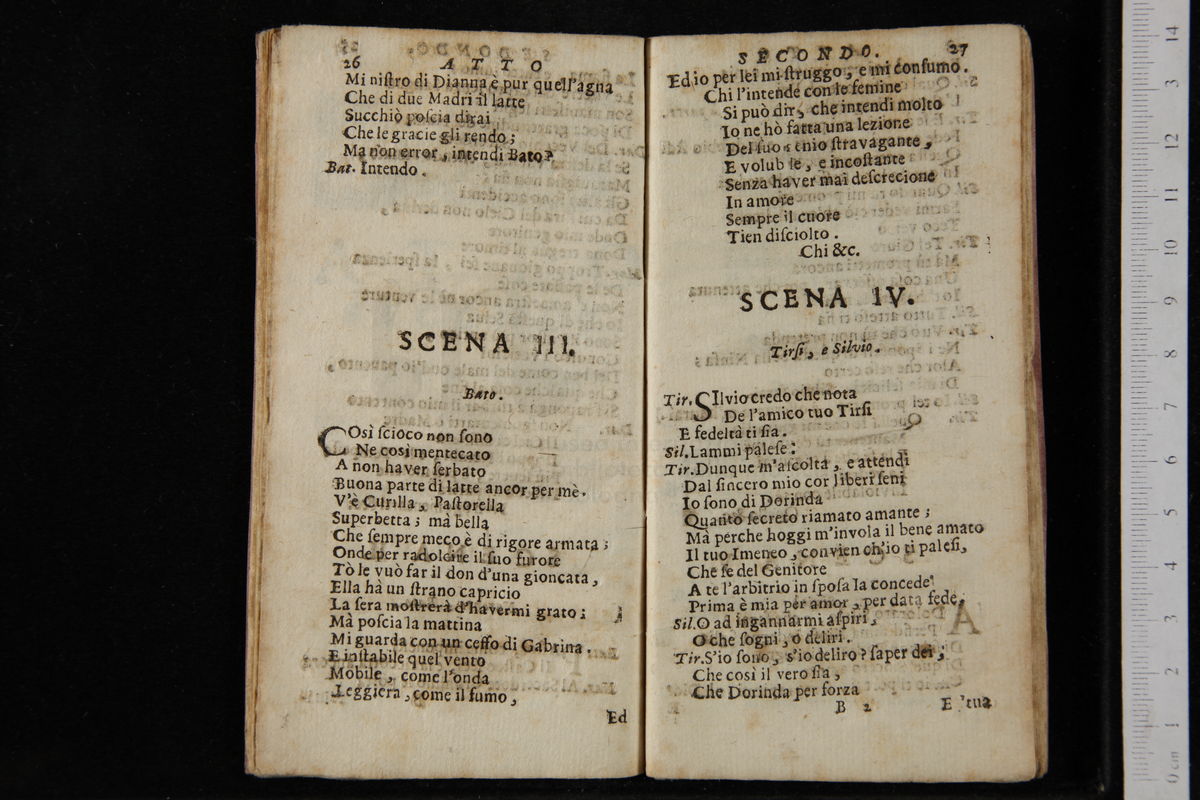 26 ATTO
Mi niſtro di Dianna è pur quell'agna
Che di due Madri il latte
Succhiò poſcia dirai
Che le gracie gli rendo;
Ma non error, intendi Bato?
Bat. Intendo.
SCENA III.
Bato.
COsì ſcioco non ſono
Ne così mentecato
A non haver ſerbato
Buona parte di latte ancor per mè.
V'è Curilla, Paſtorella
Superbetta; mà bella
Che ſempre meco è di rigore armata;
Onde per radolcire il ſuo furore
Tò le vuò far il don d'una gioncata,
Ella hà un ſtrano capricio
La ſera moſtrerà d'havermi grato;
Mà poſcia la mattina
Mi guarda con un ceffo di Gabrina.
E inſtabile quel vento
Mobile, come l'onda
Leggiera, come il fumo,
Ed
SECONDO. 27
Ed io per lei mi ſtruggo, e mi conſumo.
Chi l'intende con le femine
Si può dir, che intendi molto
Io ne hò fatta una lezione
Del ſuo enio ſtravagante,
E volub le, e incoſtante
Senza haver mai deſcrecione
In amore
Sempre il cuore
Tien diſciolto.
Chi &c.
SCENA IV.
Tirſi, e Silvio.
Tir. SIlvio credo che nota
De l'amico tuo Tirſi
E fedeltà ti ſia.
Sil. Lammi paleſe:
Tir. Dunque m'aſcolta, e attendi
Dal ſincero mio cor liberi ſenſi
Io ſono di Dorinda
Quanto ſecreto riamato amante;
Mà perche hoggi m'invola il bene amato
Il tuo Imeneo, convien ch'io ti paleſi,
Che ſe del Genitore
A te l'arbitrio in ſpoſa la concede
Prima è mia per amor, per data fede.
Sil. O ad ingannarmi aſpiri,
O che ſogni, o deliri.
Tir. S'io ſono, s'io deliro? ſaper dei,
Che così il vero ſia,
Che Dorinda per forza
B 2 E 'tua